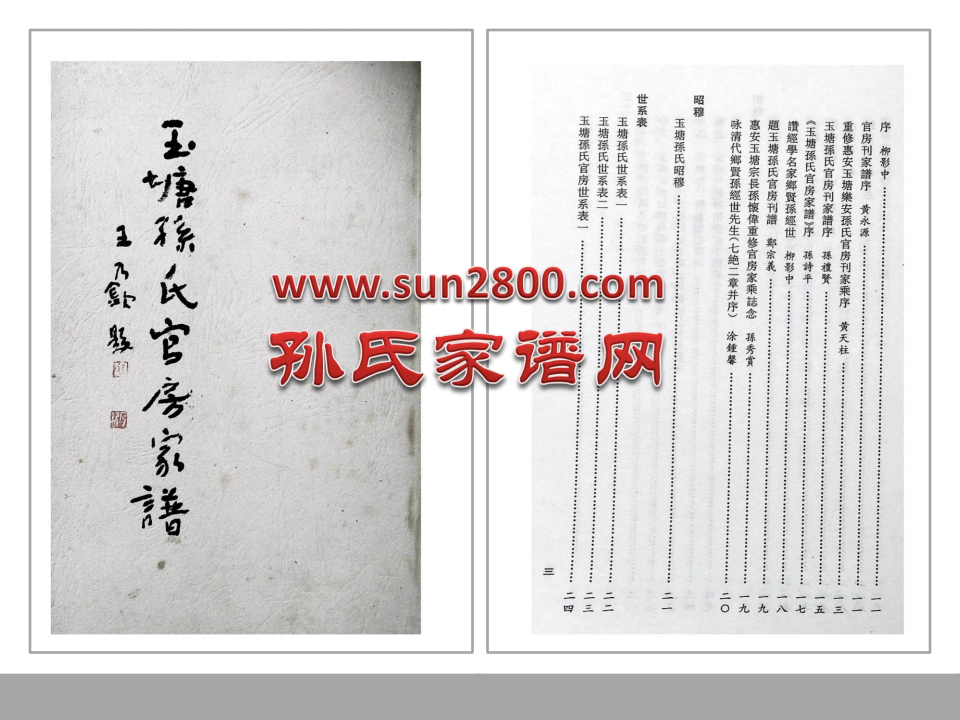 玉塘孫氏官房家譜
王乃欽題
www.sun2800.com
孙氏家谱网
序 柳影中 一一
官房刊家譜序 黄永源 一一
重修惠安玉塘樂安孫氏官房刊家乘序 黄天柱 一三
玉塘孫氏官房刊家譜序 孫禮賢 一五
《玉塘孫氏官房家譜》序 孫詩平 一七
讚經學名家鄉賢孫經世 柳影中 一八
題玉塘孫氏官房刊譜 鄭宗義 一九
惠安玉塘宗長孫懷偉重修官房家乘誌念 孫秀賞 一九
咏清代鄉賢孫經世先生(七絶二章并序) 涂鍾馨 二〇
昭穆
玉塘孫氏昭穆 二一
世系表
玉塘孫氏世系表一 二二
玉塘孫氏世系表二 二三
玉塘孫氏官房世系表一 二四
三